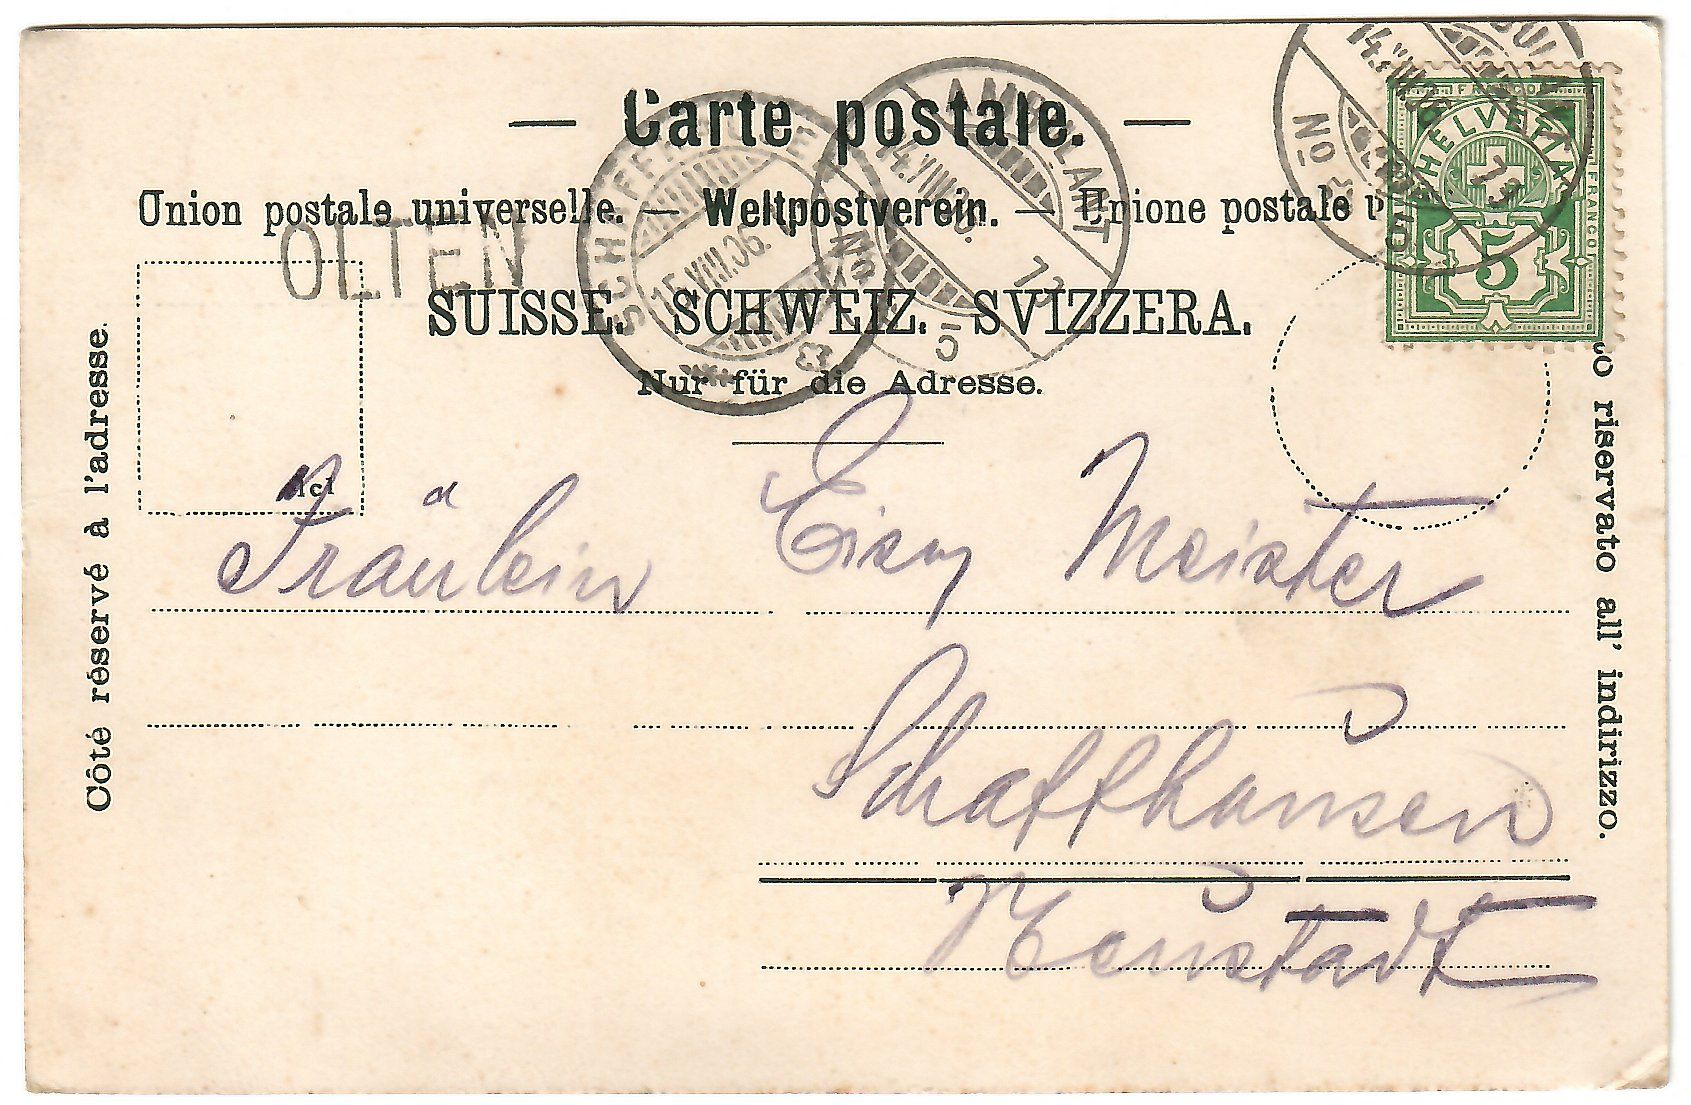 — Carte postale. —
Union postale universelle. — Weltpostverein. — Unione postale
OLTEN
SUISSE. SCHWEIZ. SVIZZERA.
Nur für die Adresse.
SCHAFFHAUSEN
15.VIII.06.
AMBULANT
14.VIII.06.
No
14.VIII.06
No
FRANCO
HELVETIA
FRANCO
5
Côté réservé à l'adresse.
riservato all' indirizzo.
Fräulein Meister
Schaffhausen
Neustadt